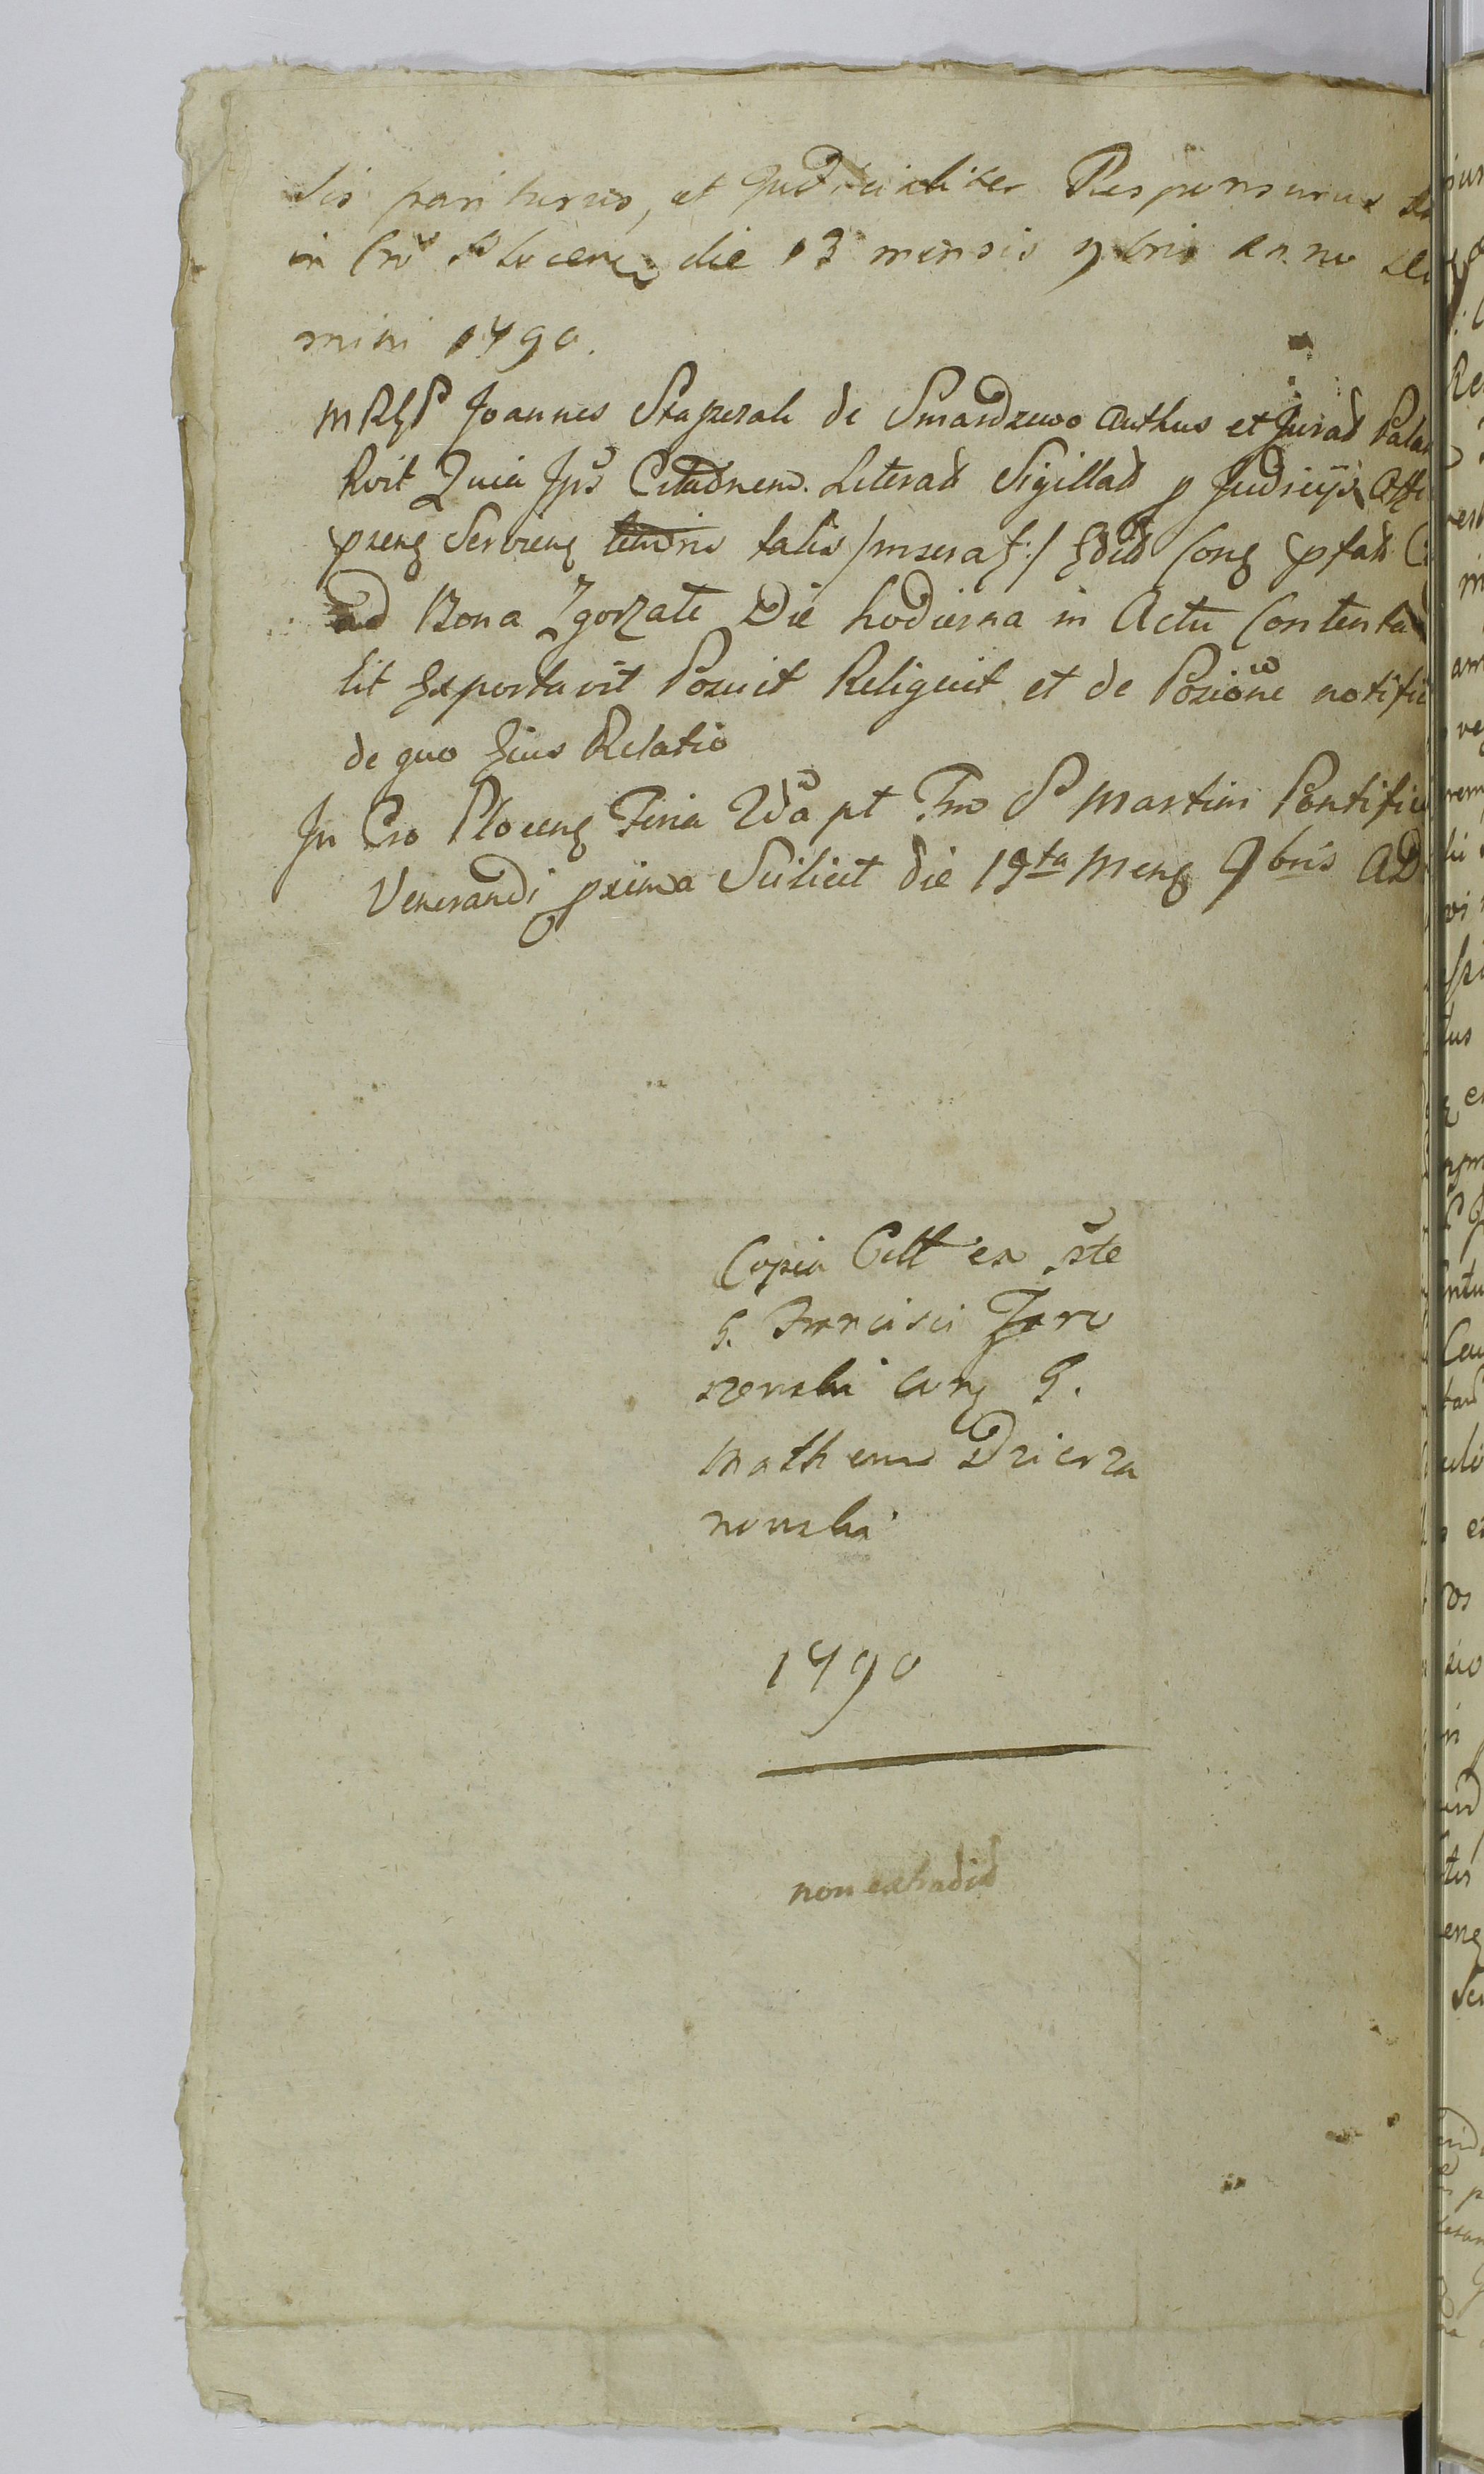 dis pariturus, et Judicialiter Responsurus
in Cro Plocen die 13 mensis 9bris anno
mini 1790.
MRgP Joannes Staperak de Smardzewo Authus et Jurad Pala
Rvit Quia Ips Citaonem Literad Sigillad p Judicys Offi
pseng Servieng tenoris talis /inseraf:/ Edid Cong pfad
ad Bona Zgorzate Die hodierna in Actu Contenta
lit Exportavit Posuit Reliquit et de Posione notifi
de quo Ejus Relatio
In Cro Ploceng Feria 2da pt Fm S Martini Pontifici
Venerandi pxima Scilicet die 13ta Meng 9bris AD
Copia Citt ex ste
G. Francisci Jaro
szewski Cong G.
Matheum Dzierza
nowski
1790
non extradid